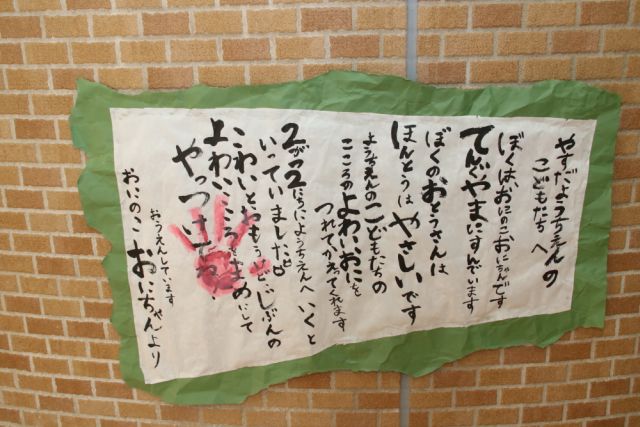 やすだようちえんの
こどもたちへ
ぼくはおにのこおにちゃんです
てんぐやまにすんでいます
ぼくのおとうさんは
ほんとうはやさしいです
ようちえんのこどもたちの
こころのよわいおにを
つれてかえてくれます
2がつ2にちにようちえんへいくと
いっていました
こわいとおもうけどじぶんの
よわいこころをまめにして
やっつけてね
おうえんしています
おにのこおにちゃんより